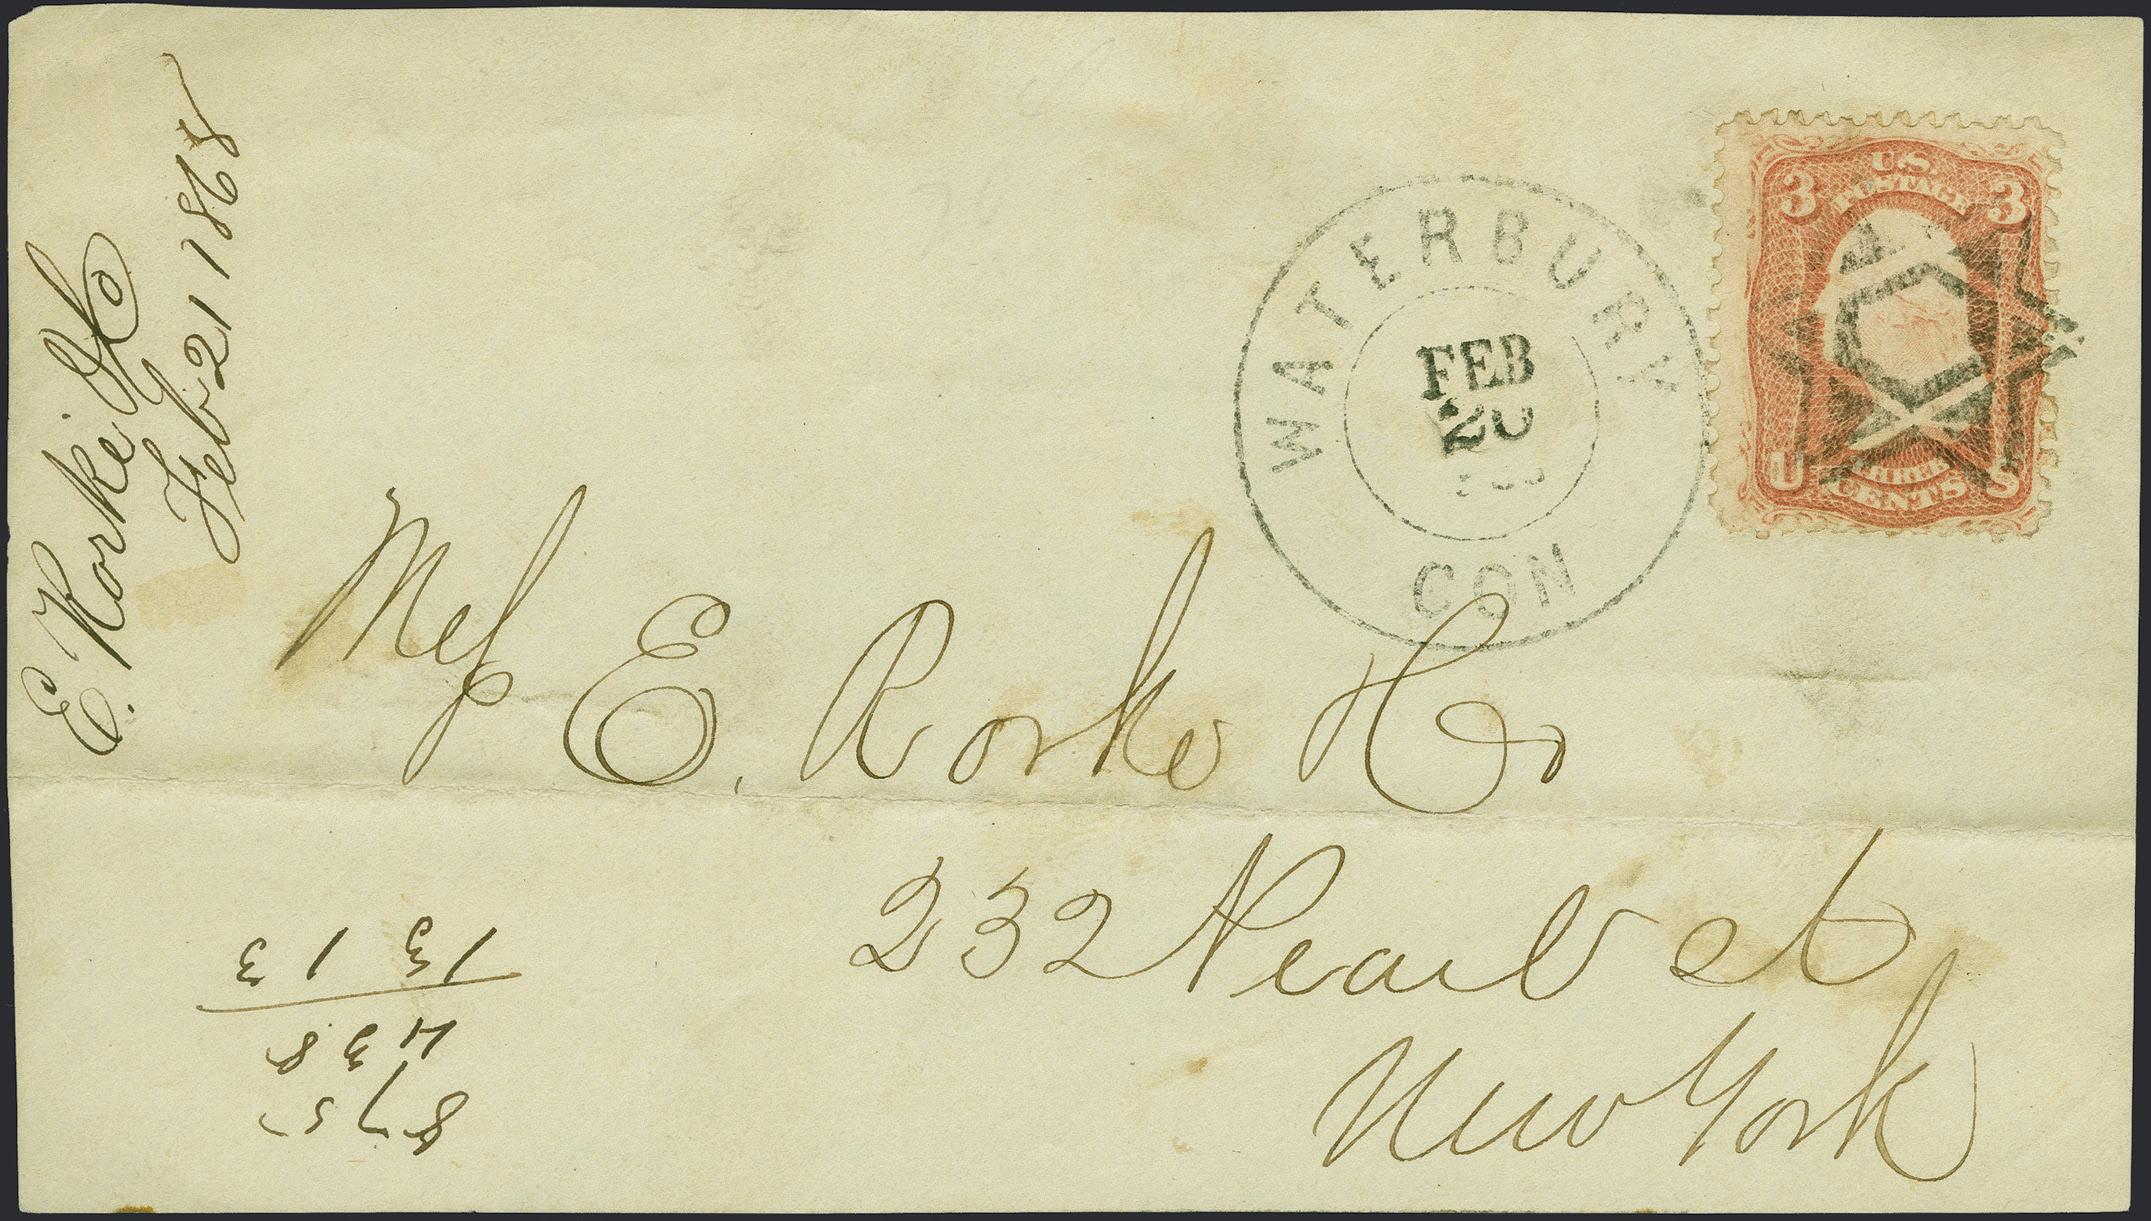 E. Rorke & Co
Feb 21 1868
WATERBURY
FEB
20
CON
U.S.
POSTAGE
3 3
U S
THREE
CENTS
Mess E. Rorke & Co
232 Pearl st
New York
875
438
1313